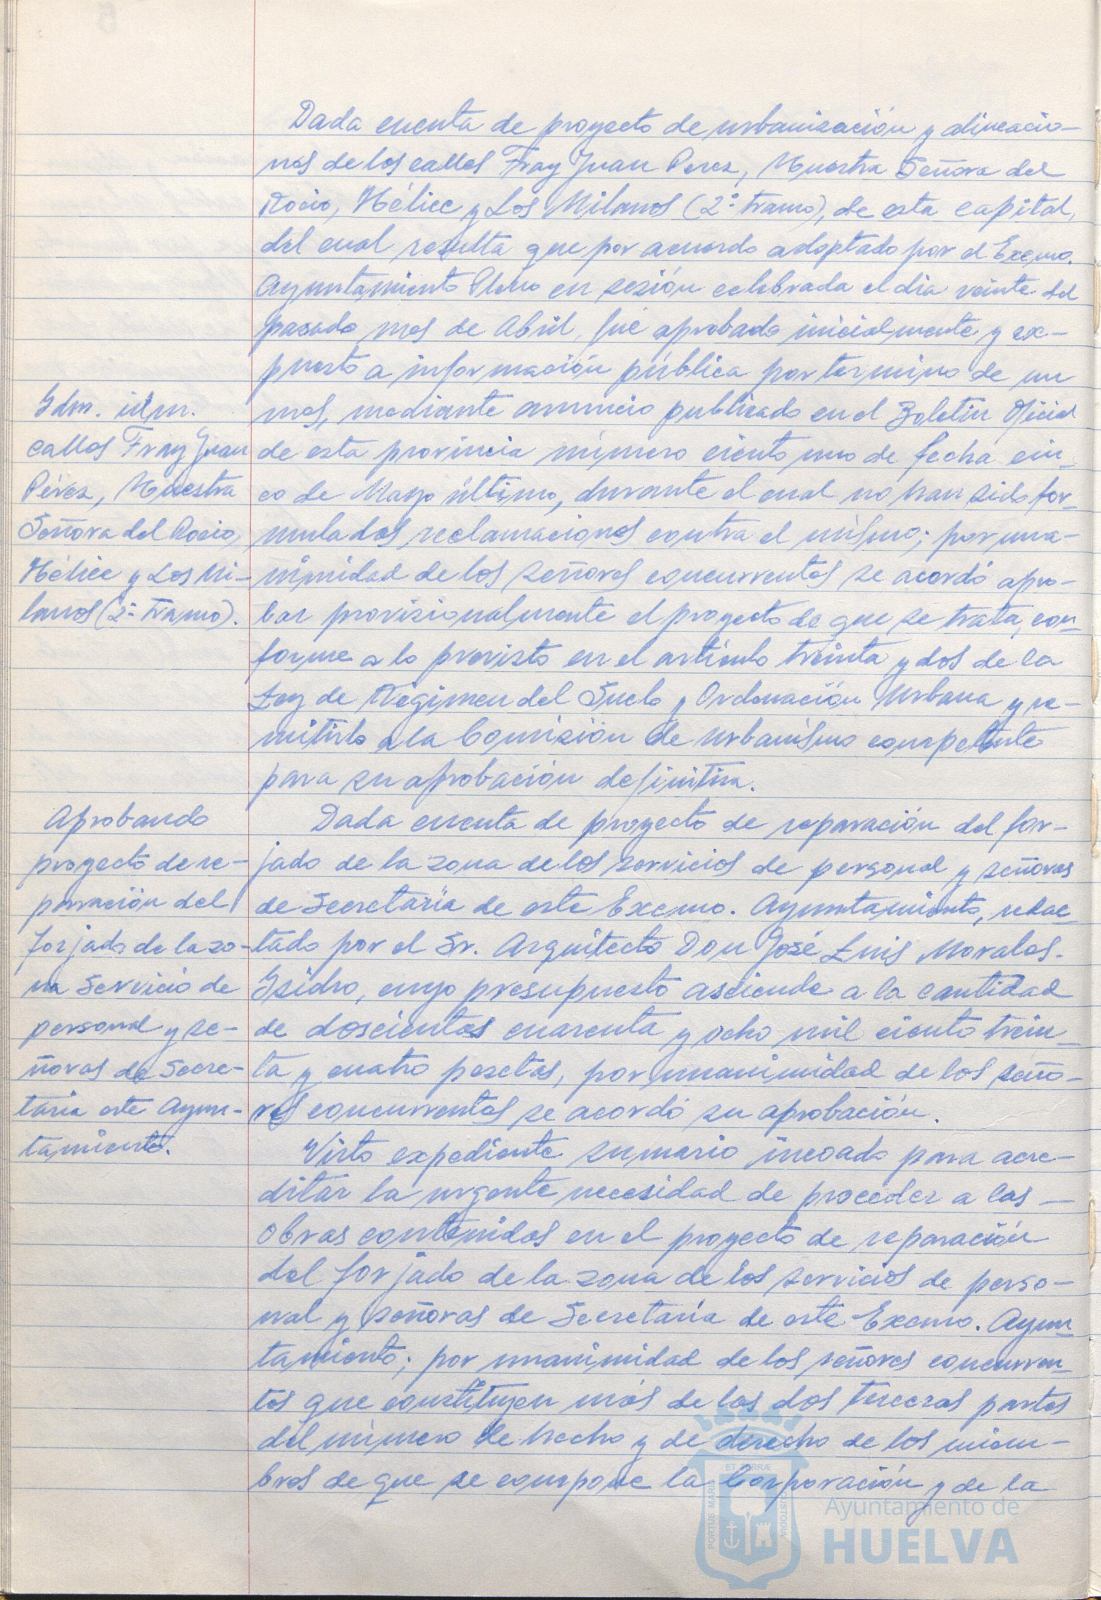 Dada cuenta de proyecto de urbanización y alineacio-
nes de los calles Fray Juan Perez, Nuestra Señora del
Rocio, Hélice y Los Milanos (2º tramo), de esta capital,
del cual resulta que por acuerdo adoptado por el Excmo.
Ayuntamiento Pleno en sesión celebrada el dia veinte del
pasado mes de Abril, fué aprobado inicialmente y ex-
puesto a información pública por termino de un
mes, mediante anuncio publicado en el Boletin Oficial
de esta provincia número ciento uno de fecha cin-
co de Mayo último, durante el cual no han sido for-
mulados reclamaciones contra el mismo; por una-
nimidad de los señores concurrentes se acordó apro-
bar provisionalmente el proyecto de que se trata, con-
forme a lo previsto en el artículo treinta y dos de la
Ley de Régimen del Suelo y Ordenación Urbana y re-
mitirlo a la Comisión de Urbanismo competente
para su aprobación definitiva.
Idm. idm.
calles Fray Juan
Pérez, Nuestra
Señora del Rocio,
Hélice y Los Mi-
lanos (2º tramo).
Dada cuenta de proyecto de reparación del for-
jado de la zona de los servicios de personal y señoras
de Secretaría de este Excmo. Ayuntamiento, redac-
tado por el Sr. Arquitecto Don José Luis Morales.
Isidro, cuyo presupuesto asciende a la cantidad
de doscientas cuarenta y ocho mil ciento trein-
ta y cuatro pesetas, por unanimidad de los seño-
res concurrentes se acordó su aprobación.
Aprobando
proyecto de re-
paración del
forjado de la zo-
na Servicio de
personal y se-
ñoras de Secre-
taria este Ayun-
tamiento.
Visto expediente sumario incoado para acre-
ditar la urgente necesidad de proceder a las
obras contenidas en el proyecto de reparación
del forjado de la zona de los servicios de perso-
nal y señoras de Secretaría de este Excmo. Ayun-
tamiento; por unanimidad de los señores concurren-
tes que constituyen más de las dos terceras partes
del número de hecho y de derecho de los miem-
bros de que se compone la Corporación y de la
Ayuntamiento de
HUELVA